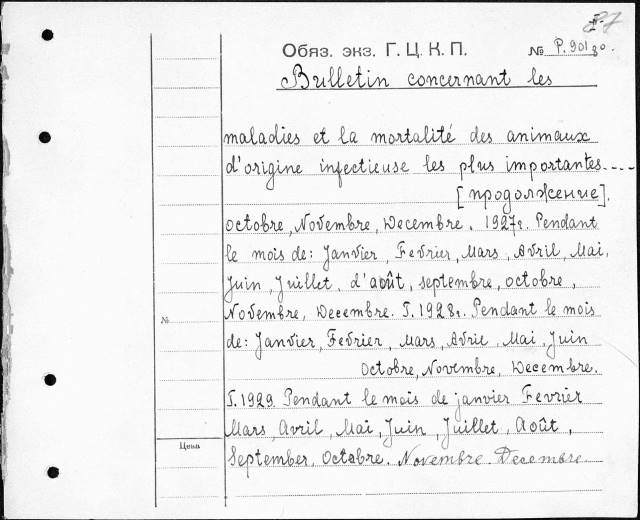 Обяз. экз. Г. Ц. К. П. № Р. 901/30.
Bulletin concernant les
maladies et la mortalité des animaux
d'origine infectieuse les plus importantes....
[продолжение].
octobre, Novembre, Decembre. 1927г. Pendant
le mois de: Janvier, Fevrier, Mars, Avril, Mai,
Juin, Juillet, d'août, septembre, octobre,
Novembre, Decembre. T. 1928г. Pendant le mois
№
de: Janvier, Fevrier, Mars, Avril, Mai, Juin
Octobre, Novembre, Decembre.
T. 1929. Pendant le mois de janvier Fevrier
Mars, Avril, Mai, Juin, Juillet, Août,
Цена
September, Octobre. Novembre. Decembre.